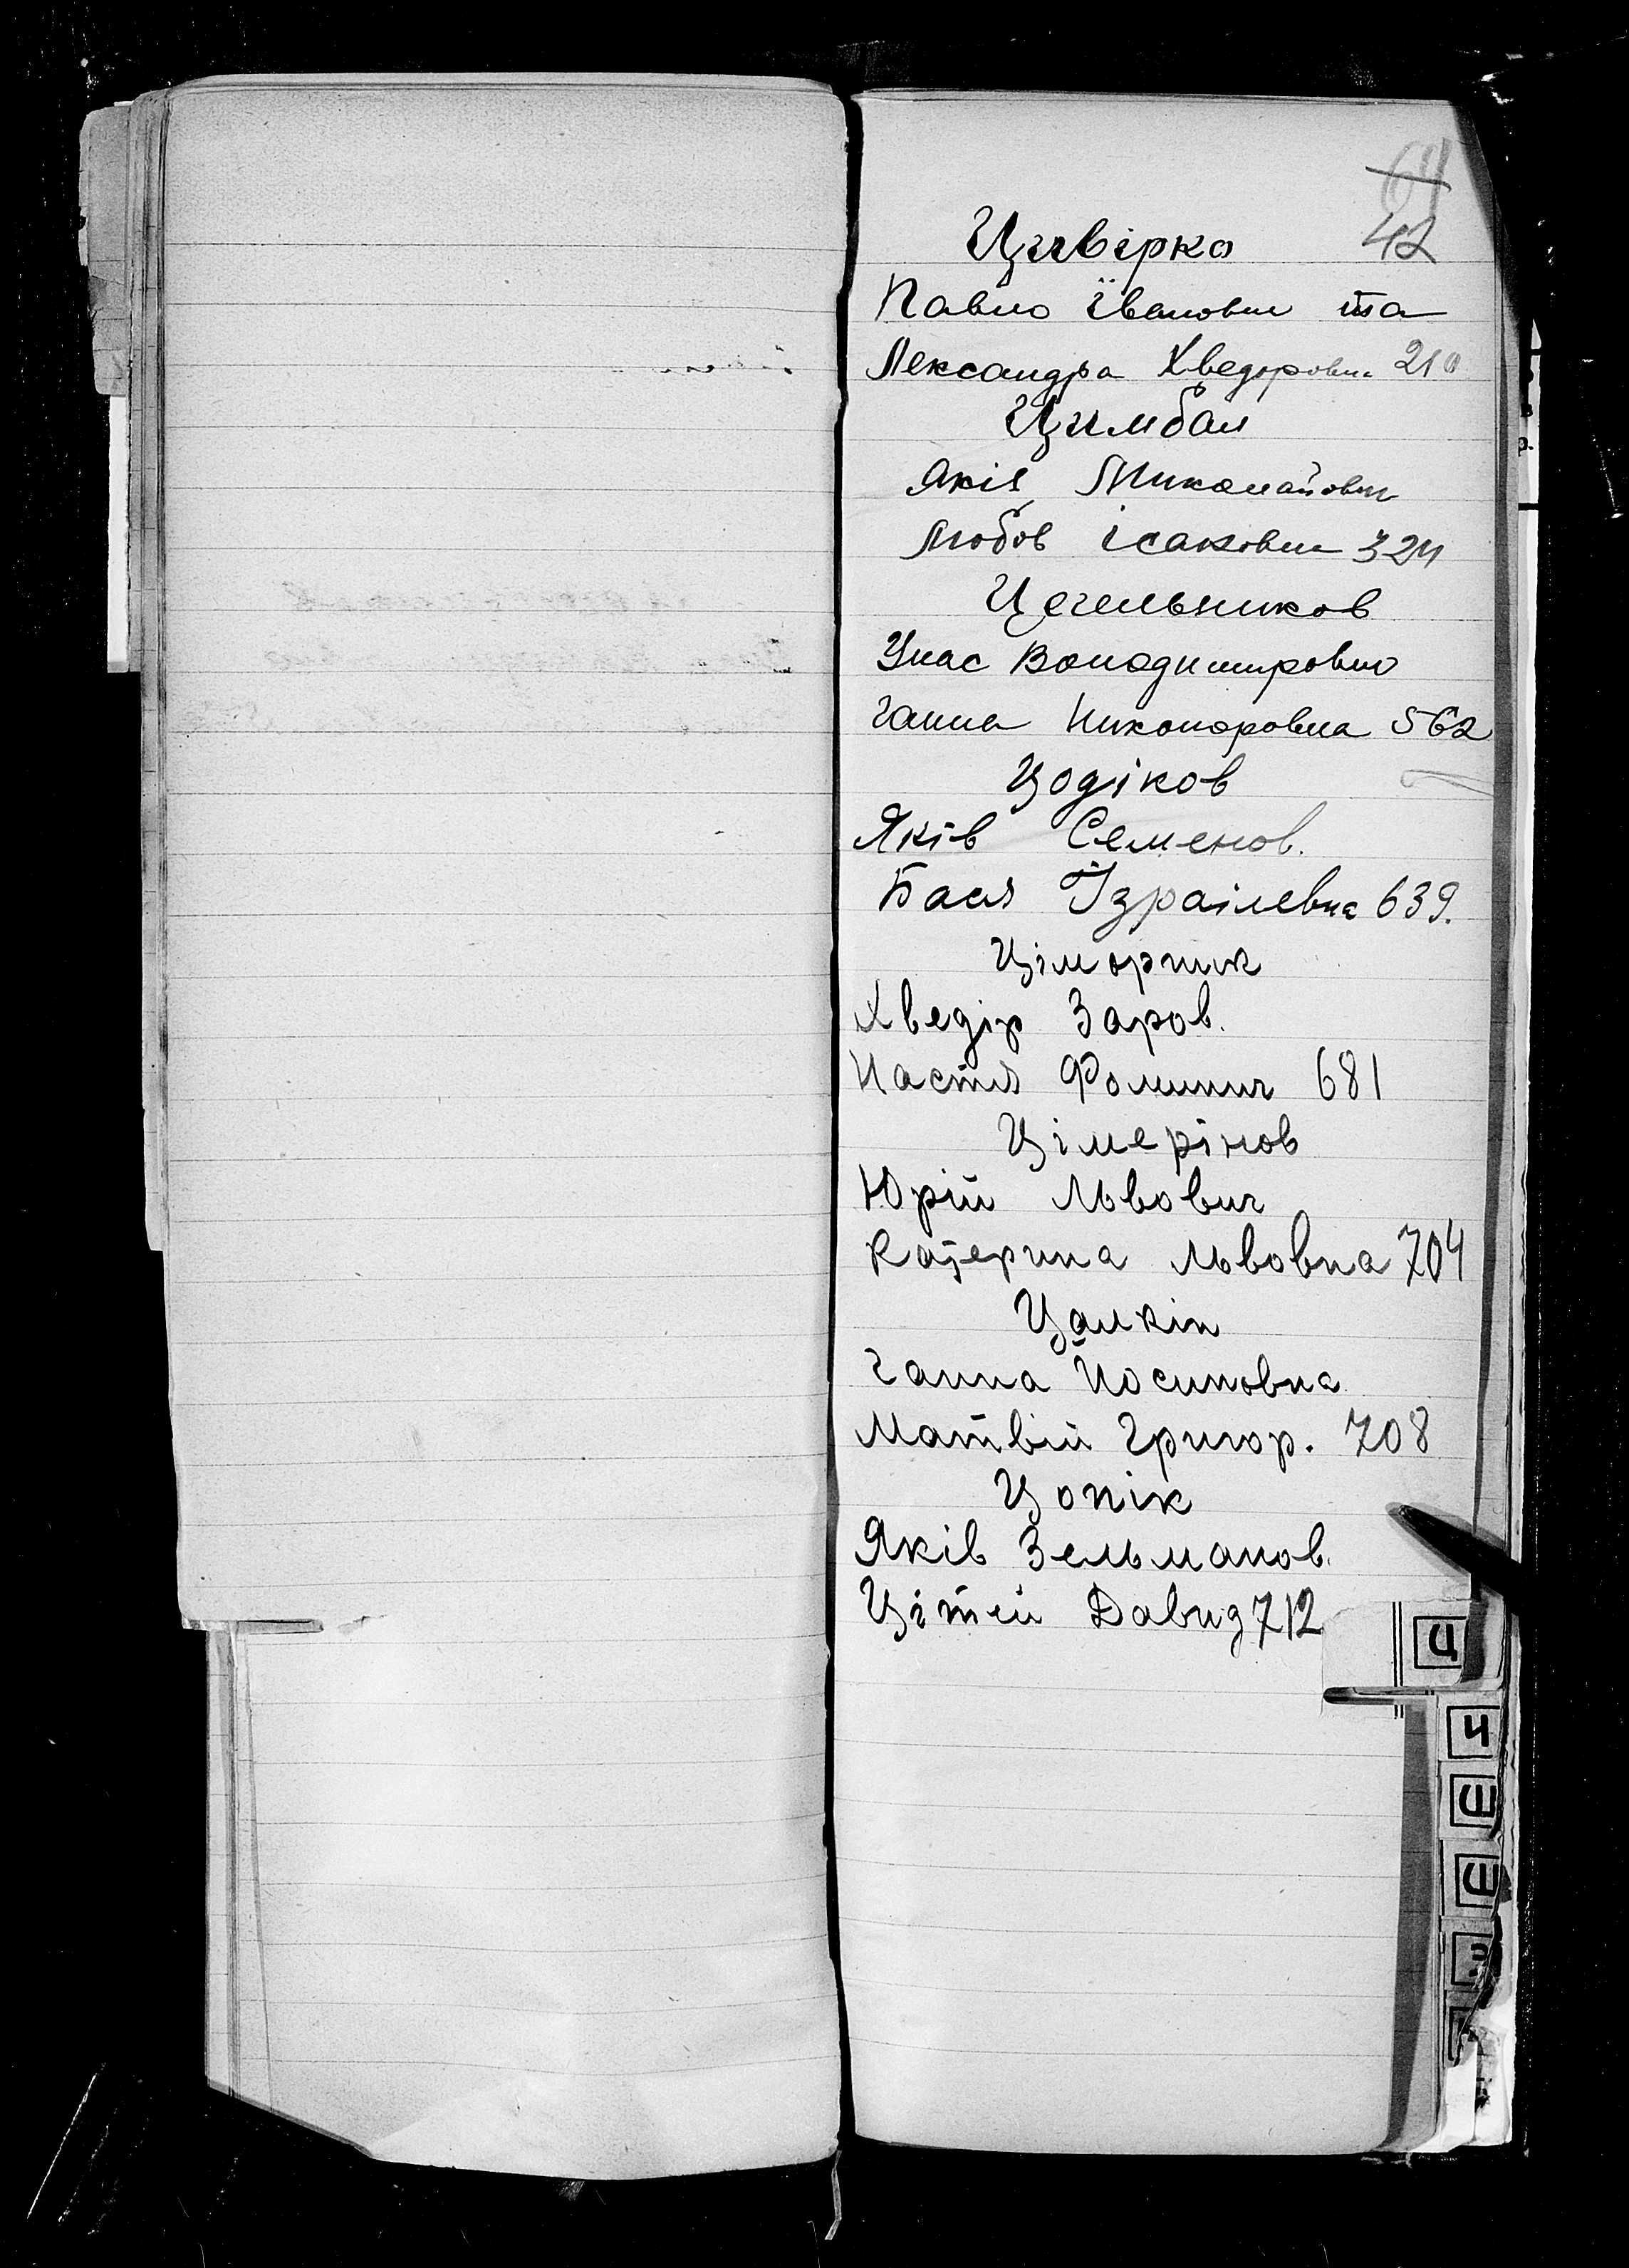 64
42
Цивірко
Павло Іванович та
Лександра Хведоровна 210
Цимбал
Якія Миколайович
Любов Ісаковна 324
Цегельников
Улас Володимирович
Ганна Никоноровна 562
Цодіков
Яків Семенов.
Бася Ізраілевна 639.
Хведір Заров.
Настя Фоминич 681
Цімерінов
Юрій Львович
Катерина Львовна 704
Цалкін
Ганна Йосиповна
Матвій Григор. 708
Цопік
Яків Зельманов.
Давид 712
Ц
Ч
Ш